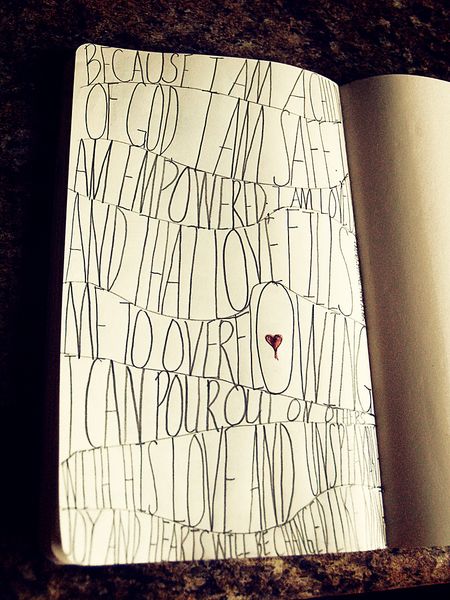 BECAUSE I AM A CHILD
OF GOD I AM SAFE
AM EMPOWERED, I AM LOVED
AND THAT LOVE FILLS
ME TO OVERFLOWING
I CAN POUR OUT ON
WITH HIS LOVE AND UNSPEAKABLE
JOY AND HEARTS WILL BE CHANGED